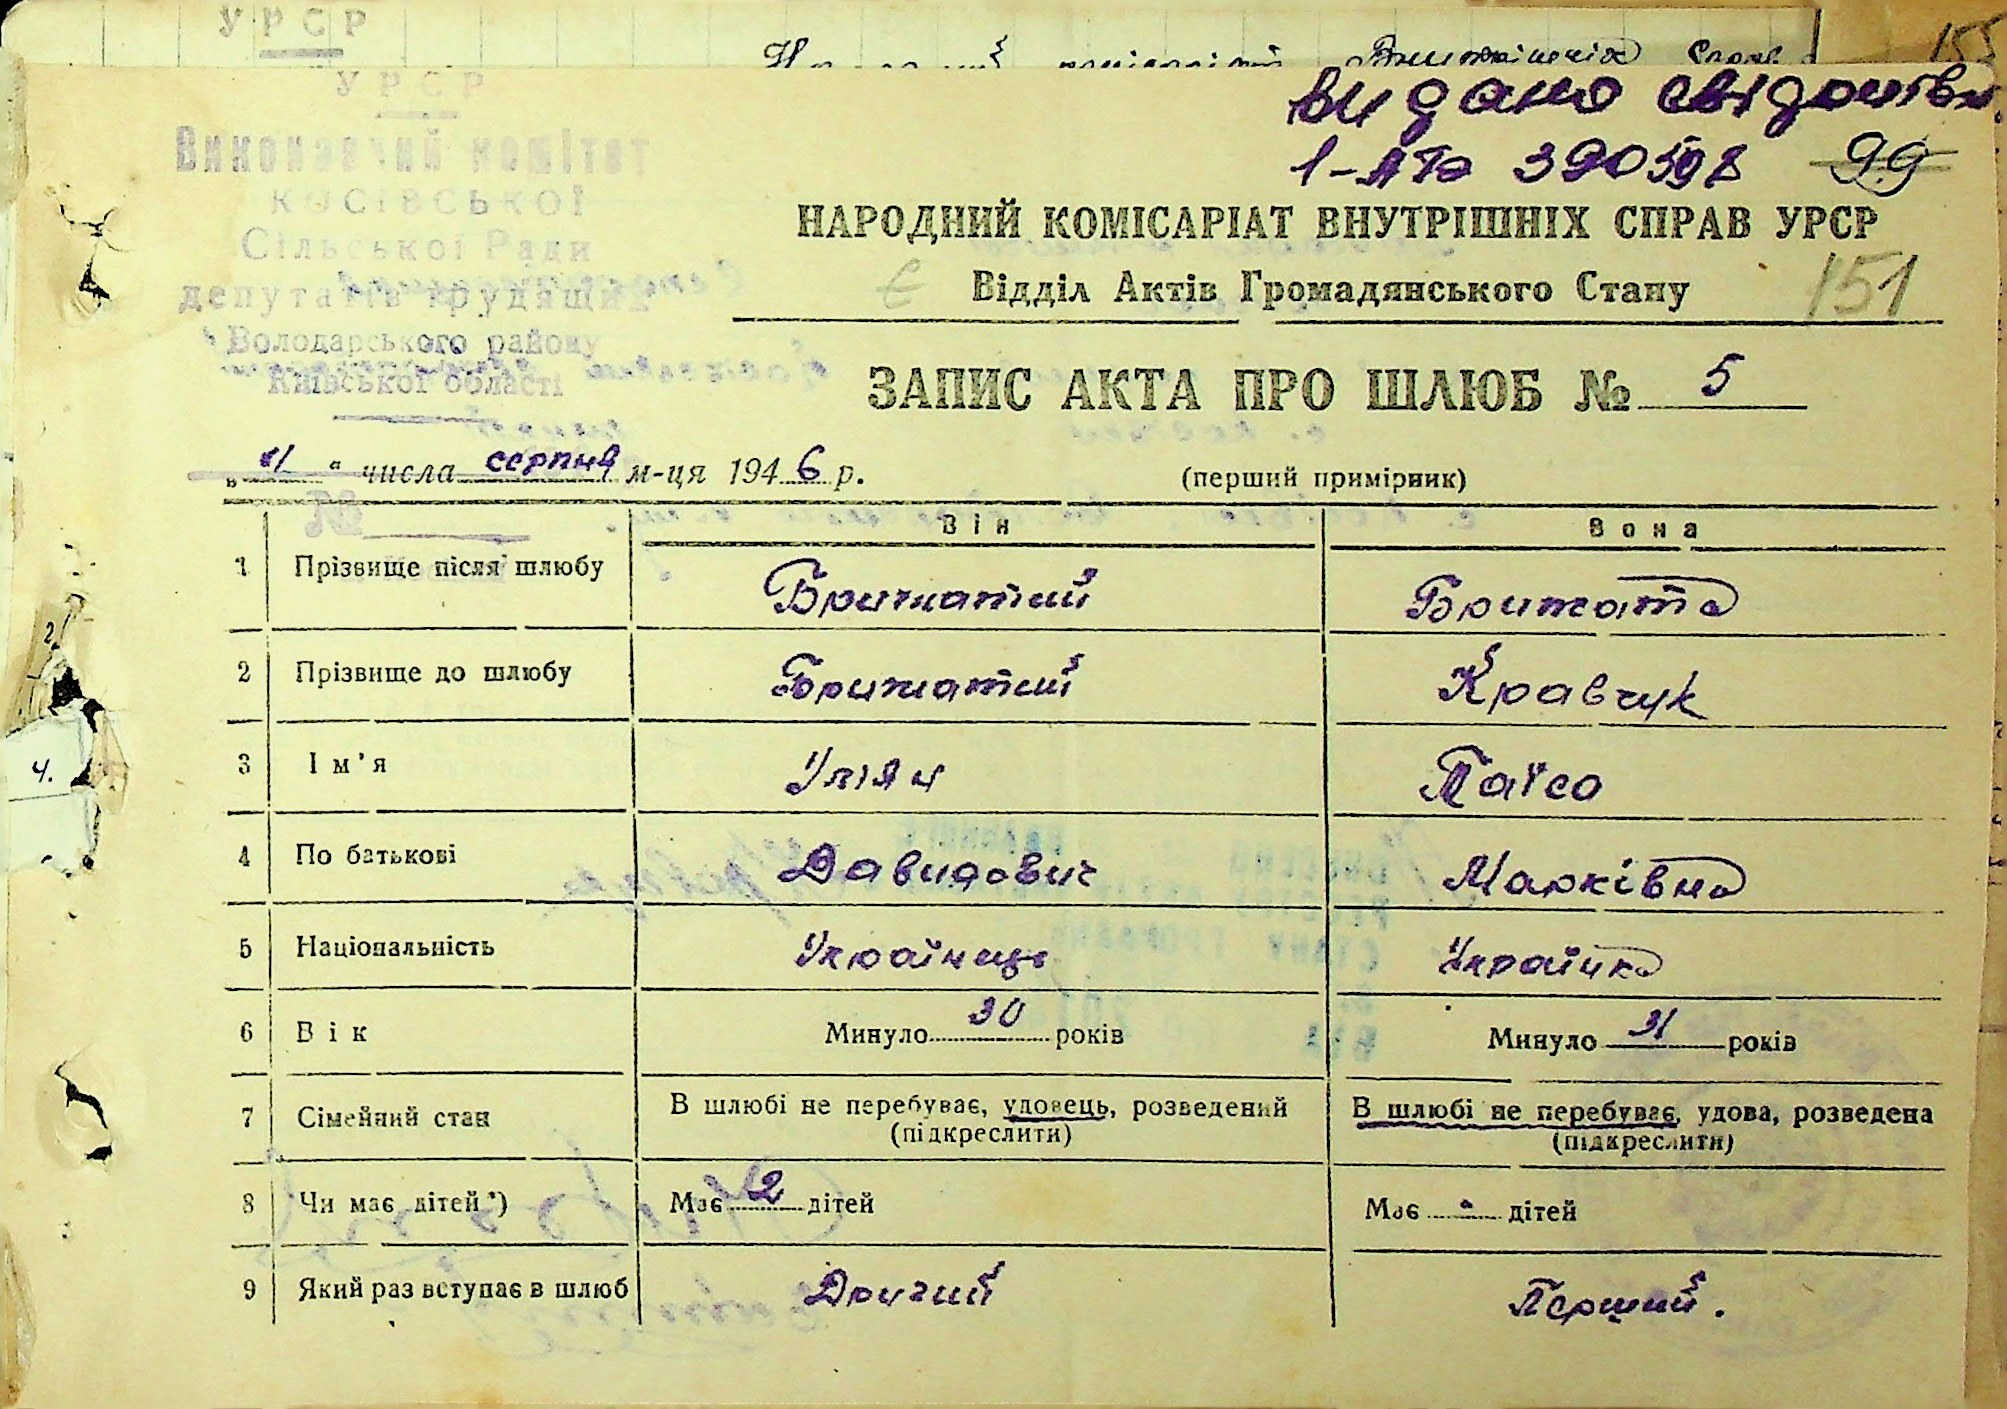 УРСР
155
УРСР
Виконавчий комітет
КОСІВСЬКОЇ
Сільської Ради
депутатів трудящих
Володарського району
Київської області
№
видано свідоцтво
1-АЮ 390598 99
НАРОДНИЙ КОМІСАРІАТ ВНУТРІШНІХ СПРАВ УРСР
Відділ Актів Громадянського Стану
151
ЗАПИС АКТА ПРО ШЛЮБ № 5
„ “ числа серпня м-ця 1946 р.
(перший примірник)
Він Вона
1 Прізвище після шлюбу Брижатий Брижата
2 Прізвище до шлюбу Брижатий Кравчук
3 Ім’я Улян
4 По батькові Давидович Марківна
5 Національність Українець Українка
6 Вік Минуло 30 років Минуло 31 років
7 Сімейний стан В шлюбі не перебуває, удовець, розведений В шлюбі не перебуває, удова, розведена
(підкреслити) (підкреслити)
8 Чи має дітей*) Має 2 дітей Має - дітей
9 Який раз вступає в шлюб Другий Перший.
2
4.